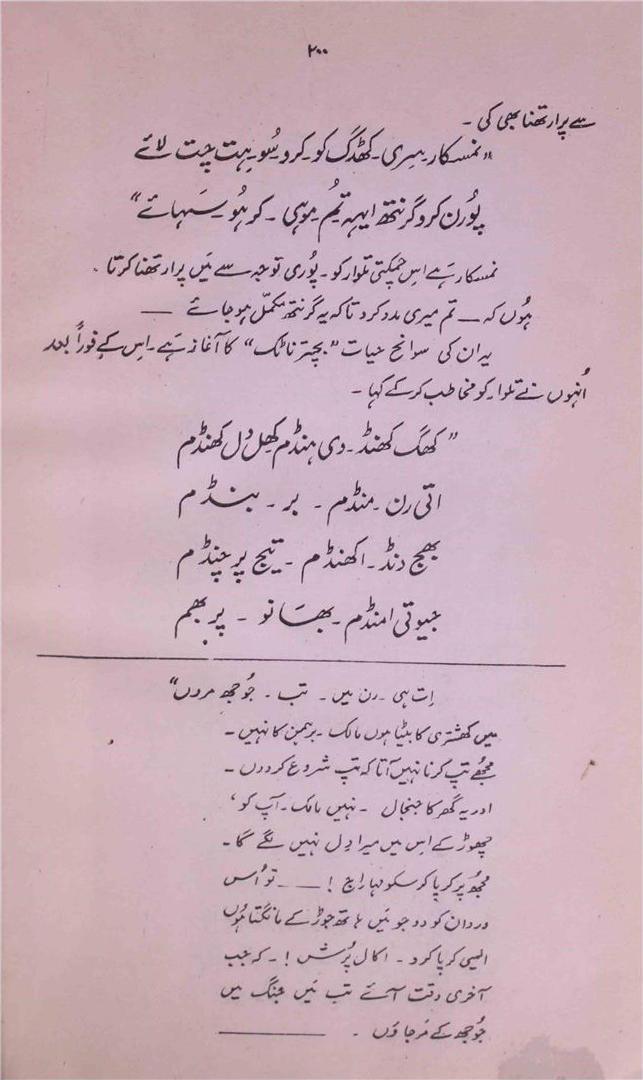 ۲۰۰
سے پرارتھنا بھی کی ۔
"نمسکار ۔ سری ۔ کھڈگ کو ۔ کرو سُو ۔ ہت چت لائے
پُورن کرو گرنتھ ایہہ تُم موہی ۔ کر ہُو ۔ سہائے"
نمسکار ہے اس چمکتی تلوار کو ۔ پوری توجہ سے مَیں پرارتھنا کرتا
ہُوں کہ — تم میری مدد کرو تاکہ یہ گرنتھ مکمّل ہو جائے —
یہ ان کی سوانح حیات "بچتر ناٹک" کا آغاز ہے ۔ اس کے فوراً بعد
اُنہوں نے تلوار کو مخاطب کر کے کہا ۔
"کھگ کھنڈ ۔ دی ہنڈم کھل دل کھنڈم
اتی رن ۔ منڈم ۔ بر ۔ بنڈم
بھج دنڈ ۔ اکھنڈم ۔ تیج پرچنڈم
جیوتی امنڈم ۔ بھانو ۔ پربھم
اِت ہی ۔ رن میں ۔ تب ۔ جُوجھ مردں"
میں کھشتری کا بیٹا ہوں مالک ۔ برہمن کا نہیں ۔
مجھے تپ کرنا نہیں آتا کہ تپ شروع کر دوں ۔
اور یہ گھر کا جنجال ۔ نہیں مالک ۔ آپ کو ،
چھوڑ کے اس میں میرا دِل نہیں لگے گا ۔
مجھ پر کرپا کر سکو مہاراج ! — تو اُس
وردان کو دو جو مَیں ہاتھ جوڑ کے مانگتا ہُوں
ایسی کرپا کرو ۔ اکال پُرش ! ۔ کہ جب
آخری وقت آئے تب مَیں جنگ میں
جُوجھ کے مَر جاؤں ۔ —